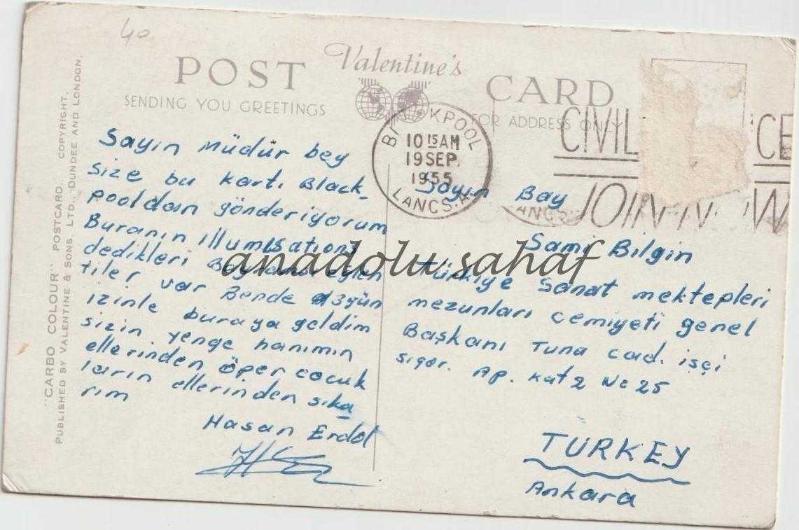 40
Valentine's
POST CARD
SENDING YOU GREETINGS
FOR ADDRESS ONLY
"CARBO COLOUR" POSTCARD. COPYRIGHT.
PUBLISHED BY VALENTINE & SONS, LTD., DUNDEE AND LONDON.
POOL
10 15 AM
19 SEP.
1955
LANCS.
CIVIL CE
JOIN NOW
Sayın Müdür bey
size bu kartı Black-
pooldan gönderiyorum
Buranın illumisations
dedikleri
tiler var Bende 3 gün
izinle buraya geldim
sizin yenge hanımın
ellerinden öper cocuk
ların ellerinden sıka
rım
Hasan Erdol
Sayın Bay
Sami Bilgin
Türkiye Sanat mektepleri
mezunları cemiyeti genel
Başkanı Tuna cad. işçi
sigor. Ap. Kat 2 No 25
TURKEY
Ankara
anadolu sahaf